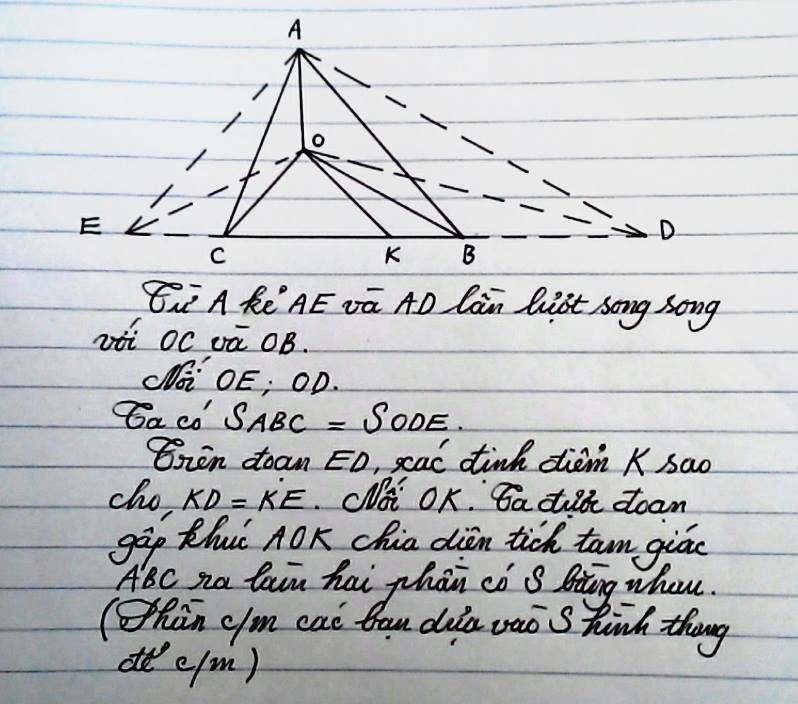 A
O
E
D
C
K
B
Từ A kẻ AE và AD lần lượt song song
với OC và OB.
Nối OE; OD.
Ta có SABC = SODE.
Trên đoạn ED, xác định điểm K sao
cho KD = KE. Nối OK. Ta được đoạn
gấp khúc AOK chia diện tích tam giác
ABC ra làm hai phần có S bằng nhau.
(Phần c/m các bạn dựa vào S hình thang
để c/m)